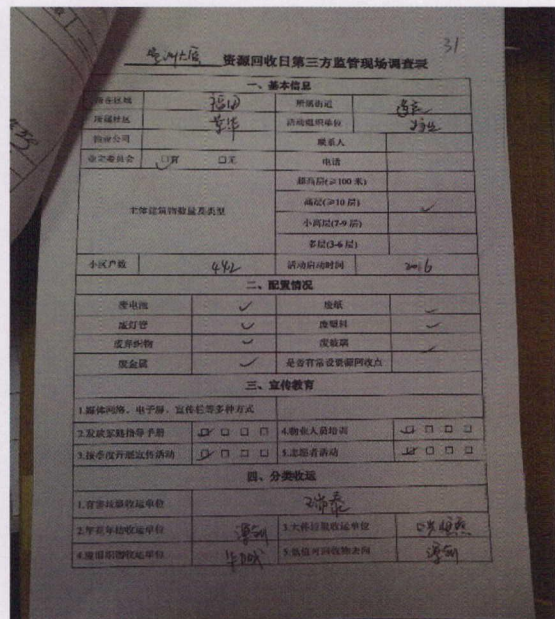 31
资源回收日第三方监管现场调查表
一、基本信息
所在区域 福田 所属街道
所属社区 活动组织单位 物业
物业公司 联系人
业主委员会 ☑有 □无 电话
主体建筑物数量及类型
超高层(≥100 米)
高层(≥10 层) ✓
小高层(7-9 层)
多层(3-6 层)
小区户数 442 活动启动时间 2016
二、配置情况
废电池 ✓ 废纸 ✓
废灯管 ✓ 废塑料 ✓
废弃织物 ✓ 废玻璃 ✓
废金属 ✓ 是否有常设资源回收点
三、宣传教育
1.媒体网络、电子屏、宣传栏等多种方式
2.发放家庭指导手册 ☑ □ □ □ 4.物业人员培训 ☑ □ □ □
3.按季度开展宣传活动 ☑ □ □ □ 5.志愿者活动 ☑ □ □ □
四、分类收运
1.有害垃圾收运单位
2.年花年桔收运单位 3.大件垃圾收运单位
4.废旧织物收运单位 5.低值可回收物去向